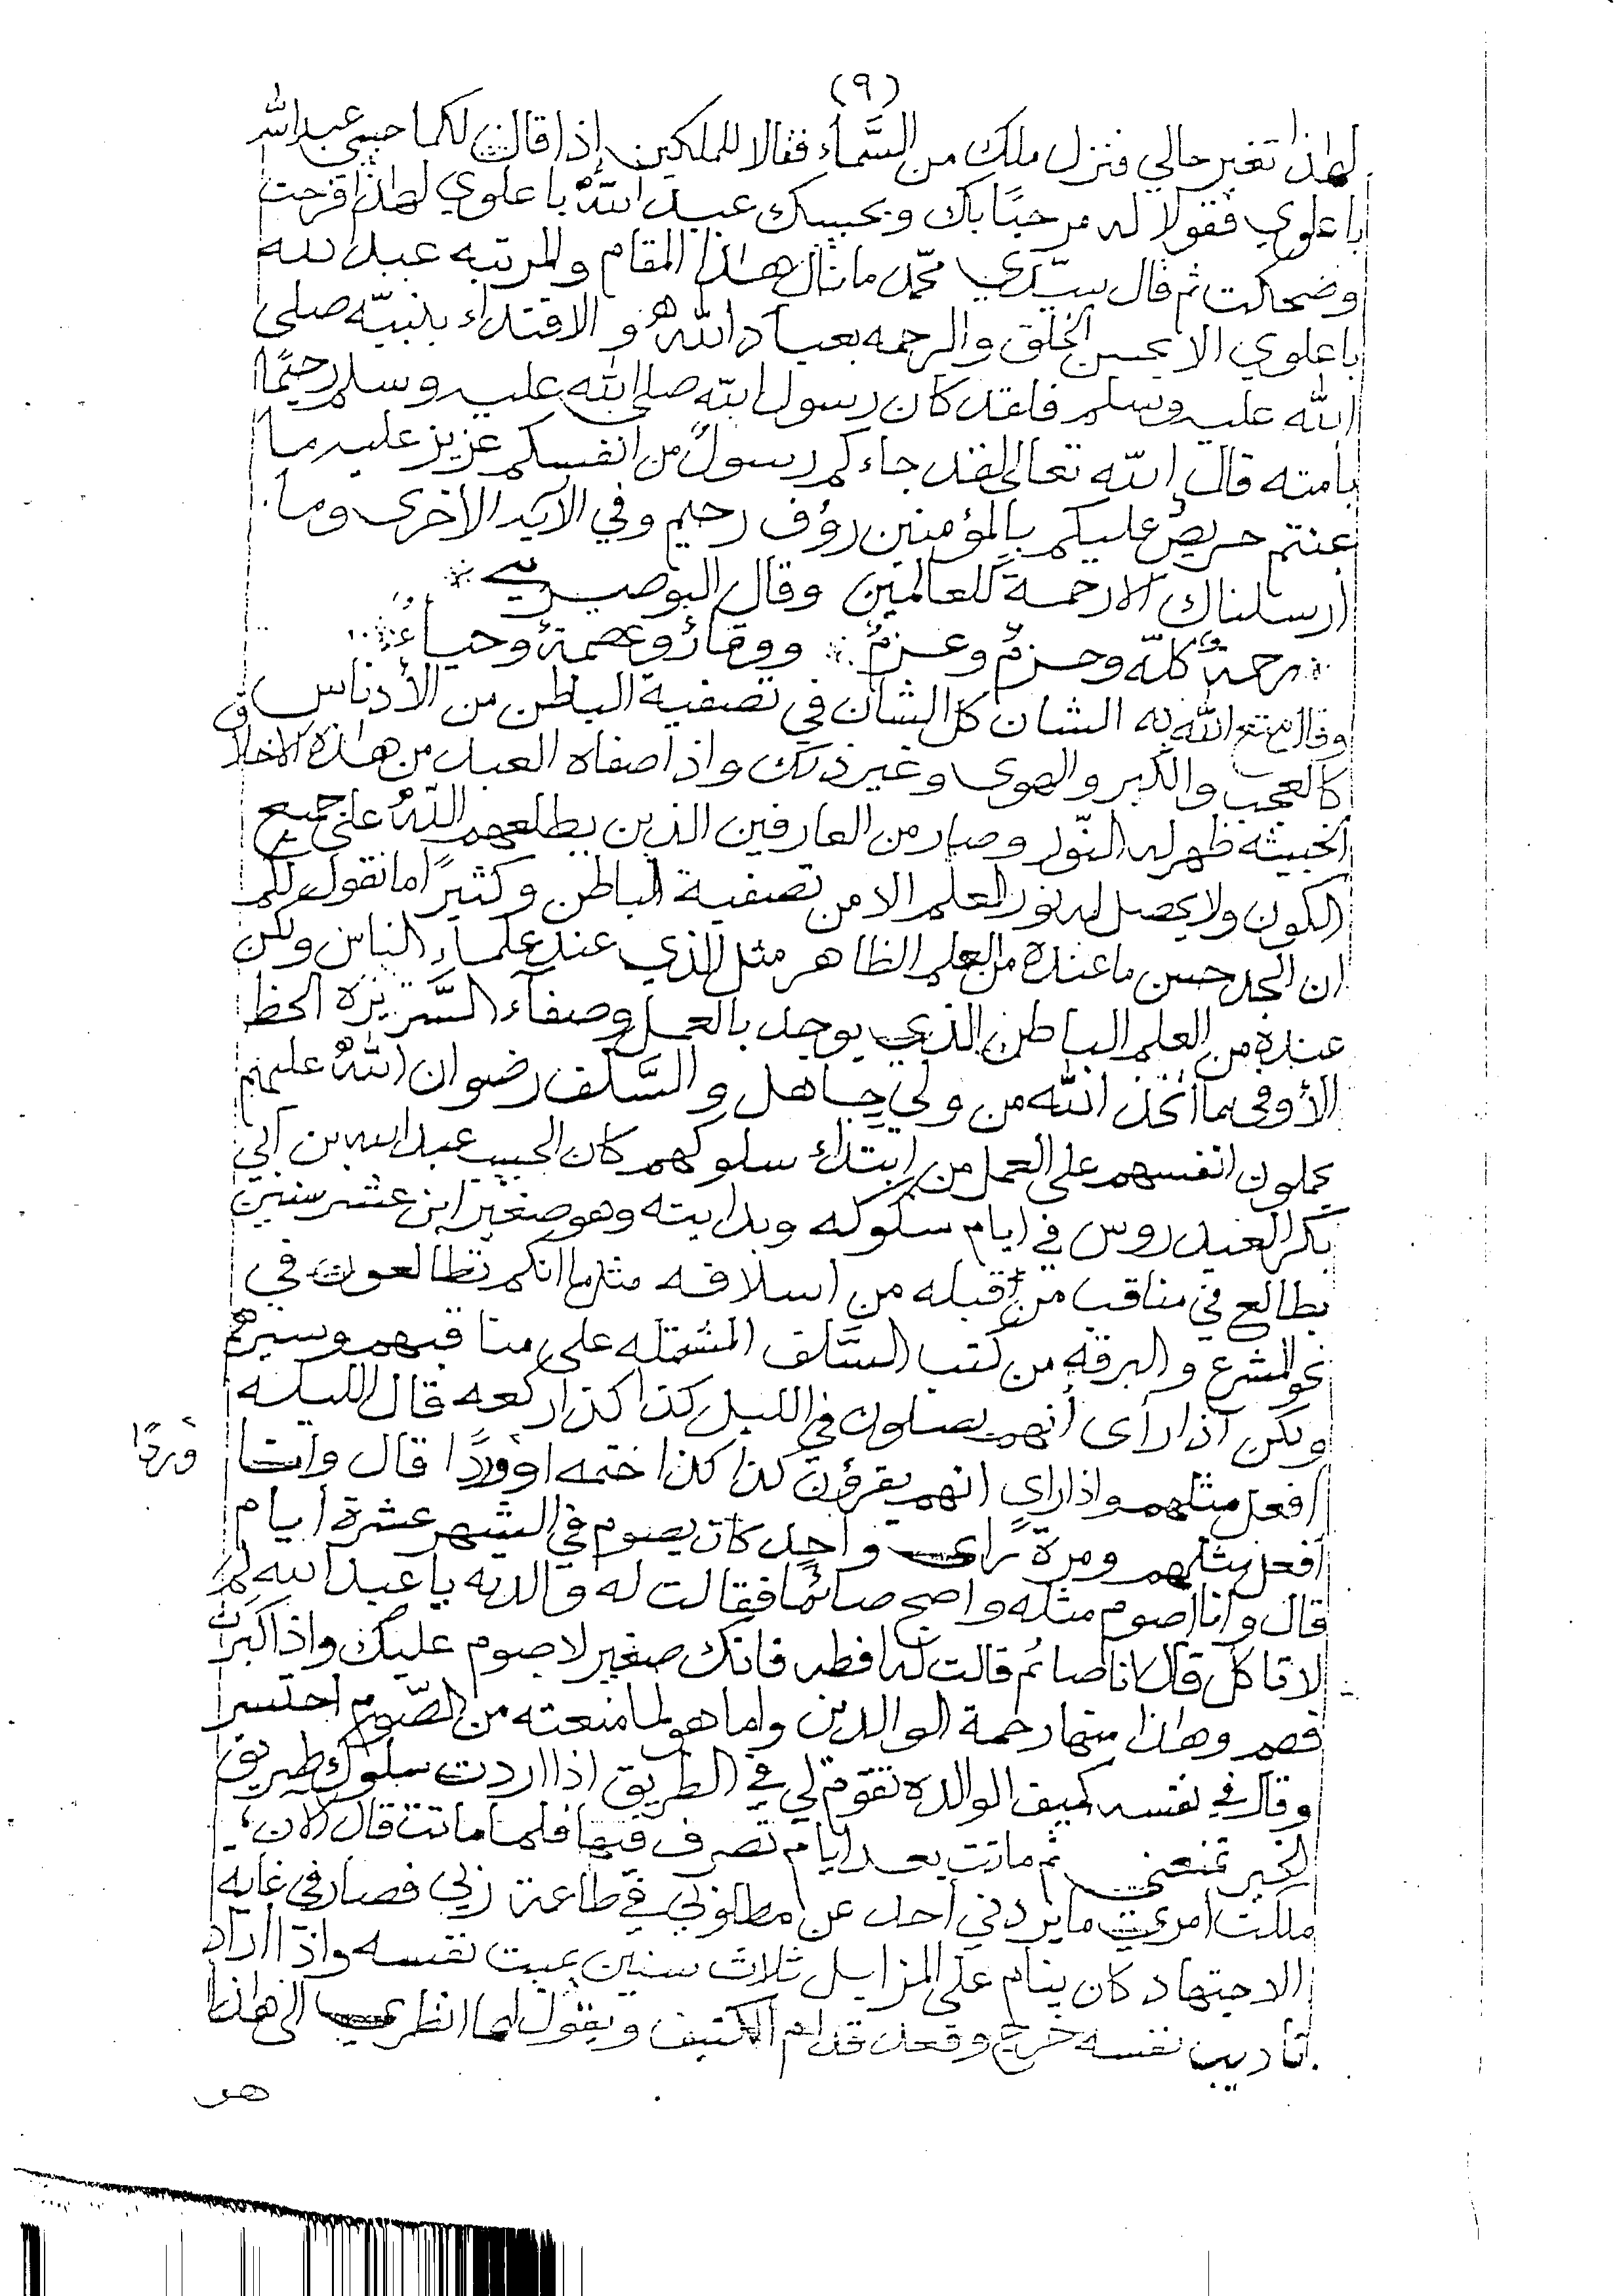 (٩)
لهذا تغير حالي فنزل ملك من السَّمآء فقالا للملكين إذا قال لكما حبيبي عبدالله
با علوي فقولا له مرحبًا بك وبحبيبك عبد اللهُ با علوي لهذا فرحت
وضحكت ثم قال سيّدي محمّد ما نال هذا المقام والمرتبه عبد الله
با علوي الا بحسن الخلق والرحمه بعباد الله و الاقتداء بنبيّه صلى
الله عليه وسلم فلقد كان رسول الله صلى الله عليه وسلم رحيمًا
بأمته قال الله تعالى لقد جاءكم رسولٌ من انفسكم عزيز عليه ما
عنتم حريصٌ عليكم بالمؤمنين رؤف رحيم وفي الآيه الأخرى وما
أرسلناك الا رحمة للعالمين وقال البوصيري
رحمةٌ كلّه وحزمٌ وعزمٌ ووقارٌ وعصمةٌ وحياءُ
وقال متع الله به الشان كل الشان في تصفية الباطن من الأدناس
كالعجب والكبر والهوى وغير ذلك واذا صفاه العبد من هذه الاخلاق
الخبيثه ظهر له النّور وصار من العارفين الذين يطلعهم اللهُ على جميع
الكون ولا يحصل له نور العلم الا من تصفية الباطن وكثيرًا ما نقول لكم
ان الجد حسن ما عنده من العلم الظاهر مثل الذي عند علماء الناس ولكن
عنده من العلم الباطن الذي يوجد بالعمل وصفآء السَّريرة الحظ
الأوفى ما أتخذ الله من ولي جاهل والسَّلف رضوان اللهُ عليهم
يحملون انفسهم على العمل من إبتداء سلوكهم كان الحبيب عبدالله بن أبي
بكر العيدروس في أيام سلوكه وبدايته وهو صغير ابن عشر سنين
يطالع في مناقب من قبله من اسلافه مثل ما انكم تطالعون في
نحو المشرع والبرقه من كتب السَّلف المشتمله على مناقبهم وسيرهم
ولكن اذا رأى أنهم يصلون في الليل كذا كذا ركعه قال الليله
أفعل مثلهم واذا راى انهم يقرؤن كذا كذا ختمه او وردًا قال وانا
وردًا
أفعل مثلهم ومرةً راى واحد كان يصوم في الشهر عشرة أيام
قال وانا اصوم مثله واصبح صائمًا فقالت له والدته يا عبد الله لم
لا تاكل قال انا صائم قالت له افطر فانك صغير لا صوم عليك واذا كبرت
فصم وهذا منها رحمة الوالدين واما هو لما منعته من الصّوم احتسر
وقال في نفسه كيف الوالده تقوم لي في الطريق اذا اردت سلوك طريق
الخير تمنعني ثم ماتت بعد أيام تصرف فيها فلما ماتت قال الآن
ملكت أمري ما يردني أحد عن مطلوبي في طاعة ربي فصار في غايه
الاجتهاد كان ينام على المزابل ثلاث سنين يميت نفسه واذا اراد
تأديب نفسه خرج وقعد قدام الكنيف ويقول لها انظري الى هذا
هو